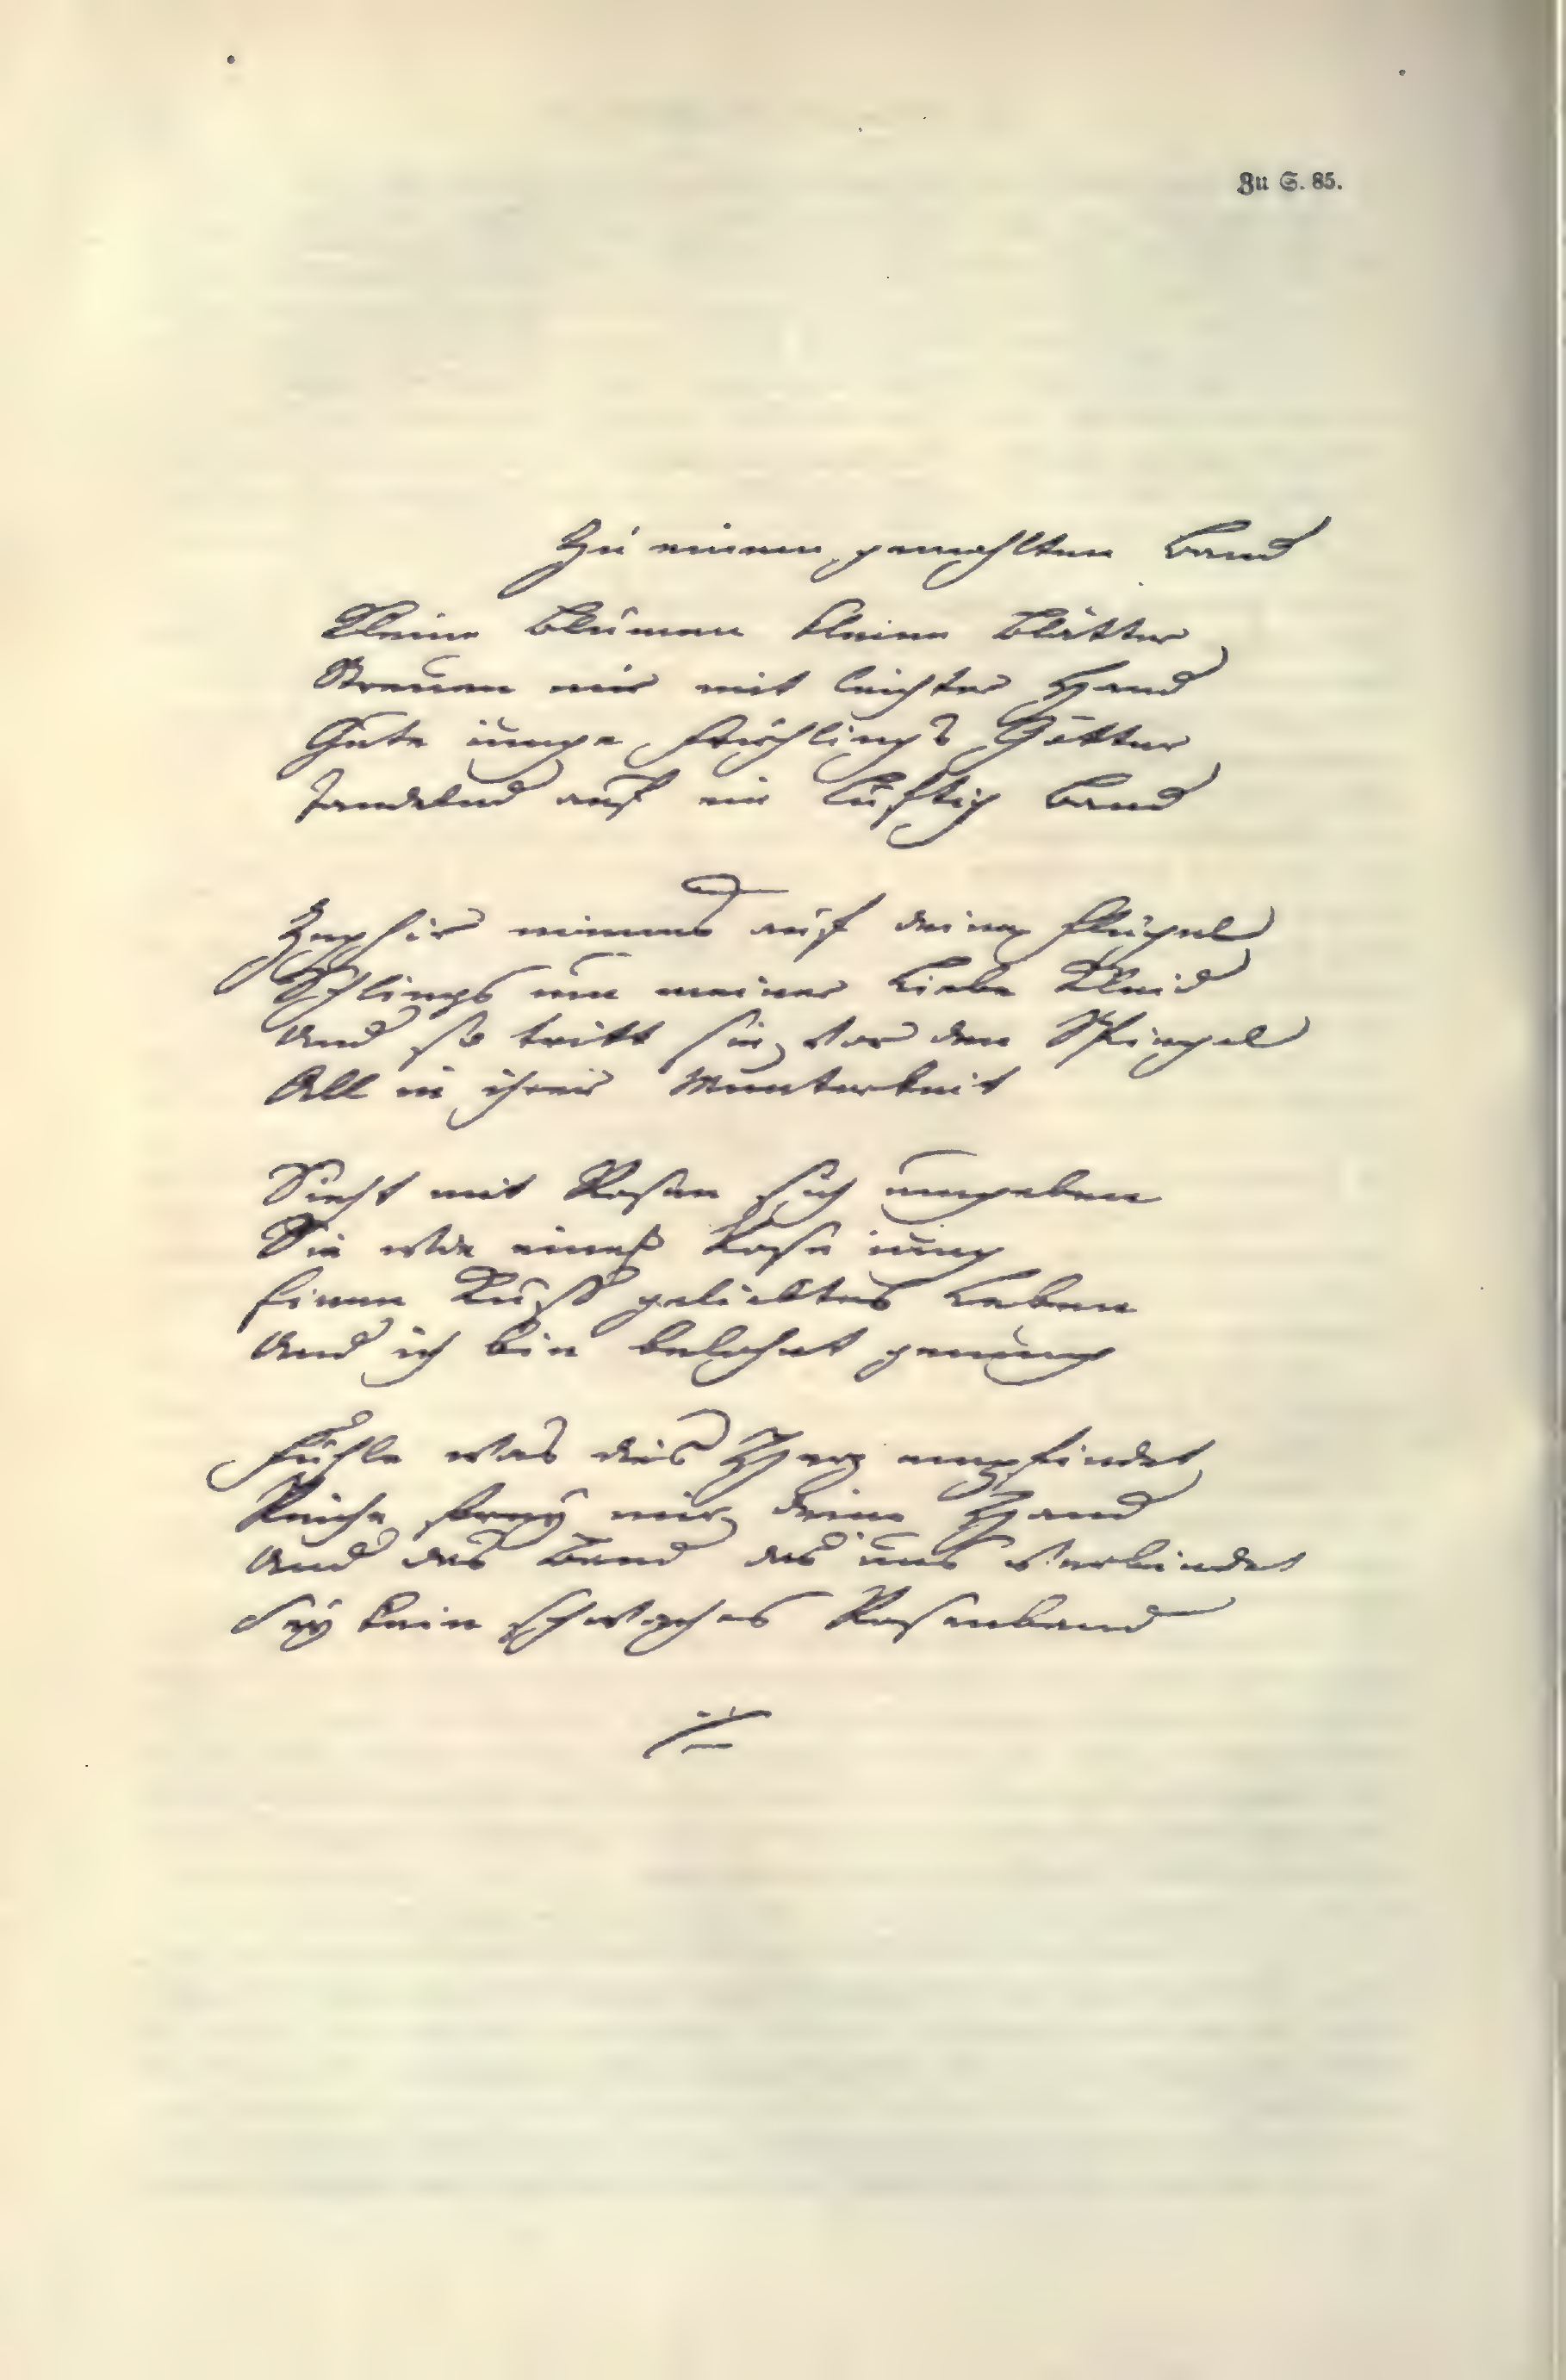 Zu S. 85.
Zu einem gemahlten Band
Kleine Blumen kleine Blätter
Streuen mir mit leichter Hand
Gute iunge Frühlings Götter
Tandelnd auf ein lüftig Band
Zephir nimms auf deine Flügel
Schlings um meiner Liebe Kleid
Und so tritt sie vor den Spiegel
All in ihrer Munterkeit
Sieht mit Rosen sich umgeben
Sie wie eine Rose iung
Einen Kuss geliebtes Leben
Und ich bin belohnt genung
Fühle was dies Herz empfindet
Reiche frey mir deine Hand
Und das Band das uns verbindet
Sey kein schwaches Rosenband